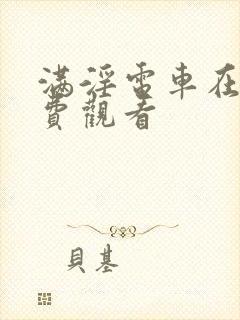 滿淫電車在
費觀看
貝基